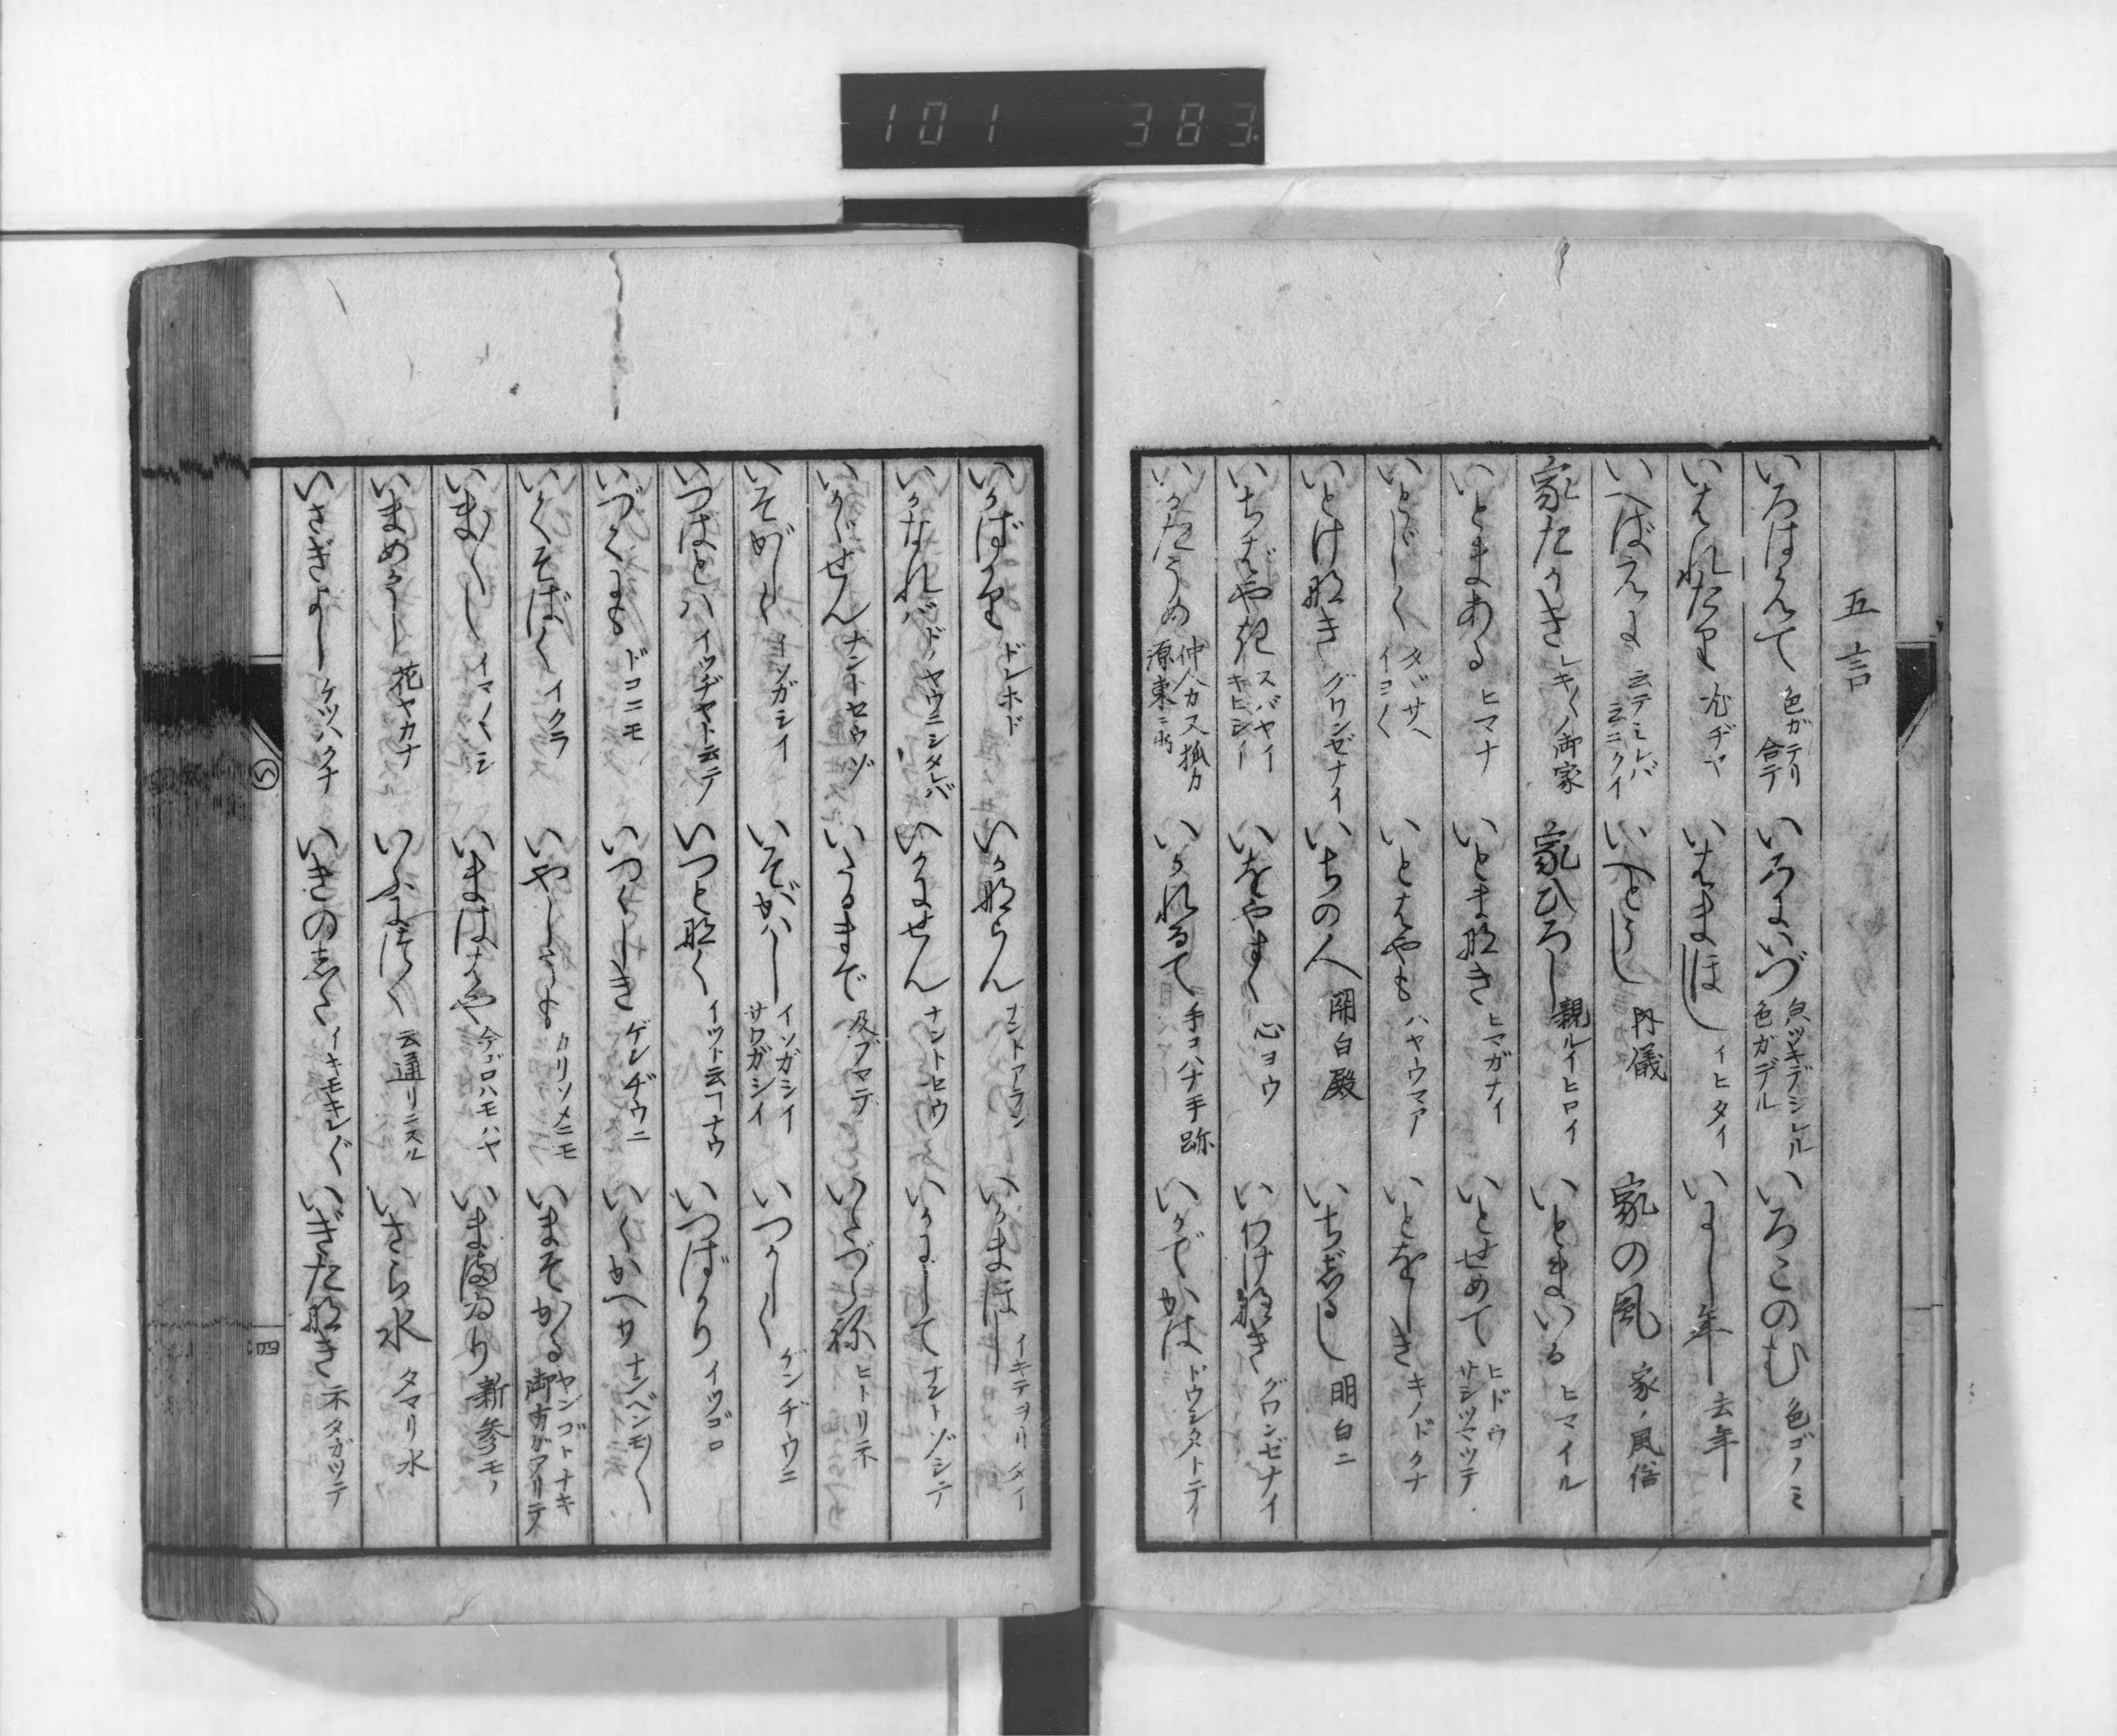 101 383
五言
いろはえて 色ガテリ合テ いろにいづ 色ガデル いろこのむ 色ゴノミ
いはれたり いはまほし イヒタイ いにし年 去年
いへばえに 云テミレバ云ニクイ いへとうじ 内儀 家の風 家ノ風俗
家たかき レキ〱ノ御家 家ひろし 親ルイヒロイ いとまいる ヒマイル
いとまある ヒマナ いとまなき ヒマガナイ いとせめて ヒドウサシツマツテ
いとゞしく イヨ〱 いとはやも ハヤウマア いとをしき キノドクナ
いとけなき グワンゼナイ いちの人 関白殿 いちじるし 明白ニ
いちはやき スバヤイキビシイ いをやすく 心ヨウ いわけなき グワンゼナイ
いかたうめ 仲人カ又狐カ いかれるて 手コハナ手跡 いかでかは ドウシタトテ
いかばかり ドレホド いかならん ナントアラン いかまほし イキテヲリタイ
いかなれバ ドノヤウニシタレバ いかにせん ナントセウ いかにして ナントゾシテ
いかゞせん ナントセウゾ いたるまで 及ブマデ いたづら寝 ヒトリネ
いそがしく イソガシイ いそがハし イソガシイサワガシイ いつかしく ゲンヂウニ
いつはとハ イツヂヤト云テ いつとなく イツト云コトナウ いつばかり イツゴロ
いづくにも ドコニモ いつくしき ゲンヂウニ いくかへり ナンベンモ〱
いくそばく イクラ いやしくも カリソメニモ いまそかる ヤンゴトナキ御方ガアリテ
いま〱し イマ〱シ いまははや 今ゴロハモハヤ いままゐり 新参モノ
いまめかし 花ヤカナ いふなへに 云通リニスル いさら水 タマリ水
いさぎよし ケツパクナ いきのした イキモキレ〲 いぎたなき ネタガツテ
い
四